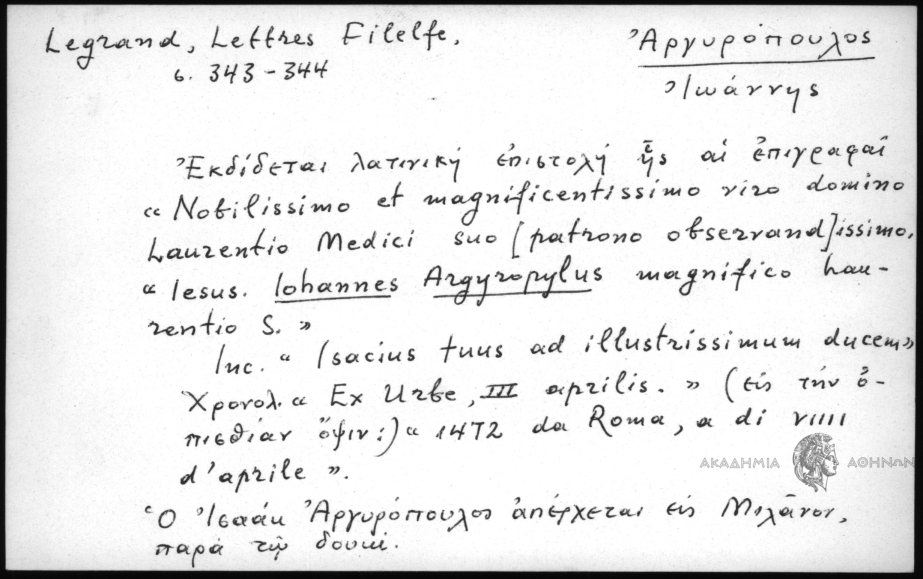 Legrand, Lettres Filelfe,
σ. 343-344
Ἀργυρόπουλος
Ἰωάννης
Ἐκδίδεται λατινική ἐπιστολή ἧς αἱ ἐπιγραφαί
« Nobilissimo et magnificentissimo viro domino
Laurentio Medici suo [patrono observand]issimo,
« Iesus. Iohannes Argyropylus magnifico Lau-
rentio S. »
Inc. « Isacius tuus ad illustrissimum ducem»
Χρονολ. « Ex Urbe, III aprilis. » (εἰς τήν ὀ-
πισθίαν ὄψιν:) « 1472 da Roma, a di VIIII
d'aprile ».
Ὁ Ἰσαάκ Ἀργυρόπουλος ἀπέρχεται εἰς Μιλᾶνον,
παρά τῷ δουκί.
ΑΚΑΔΗΜΙΑ ΑΘΗΝΩΝ